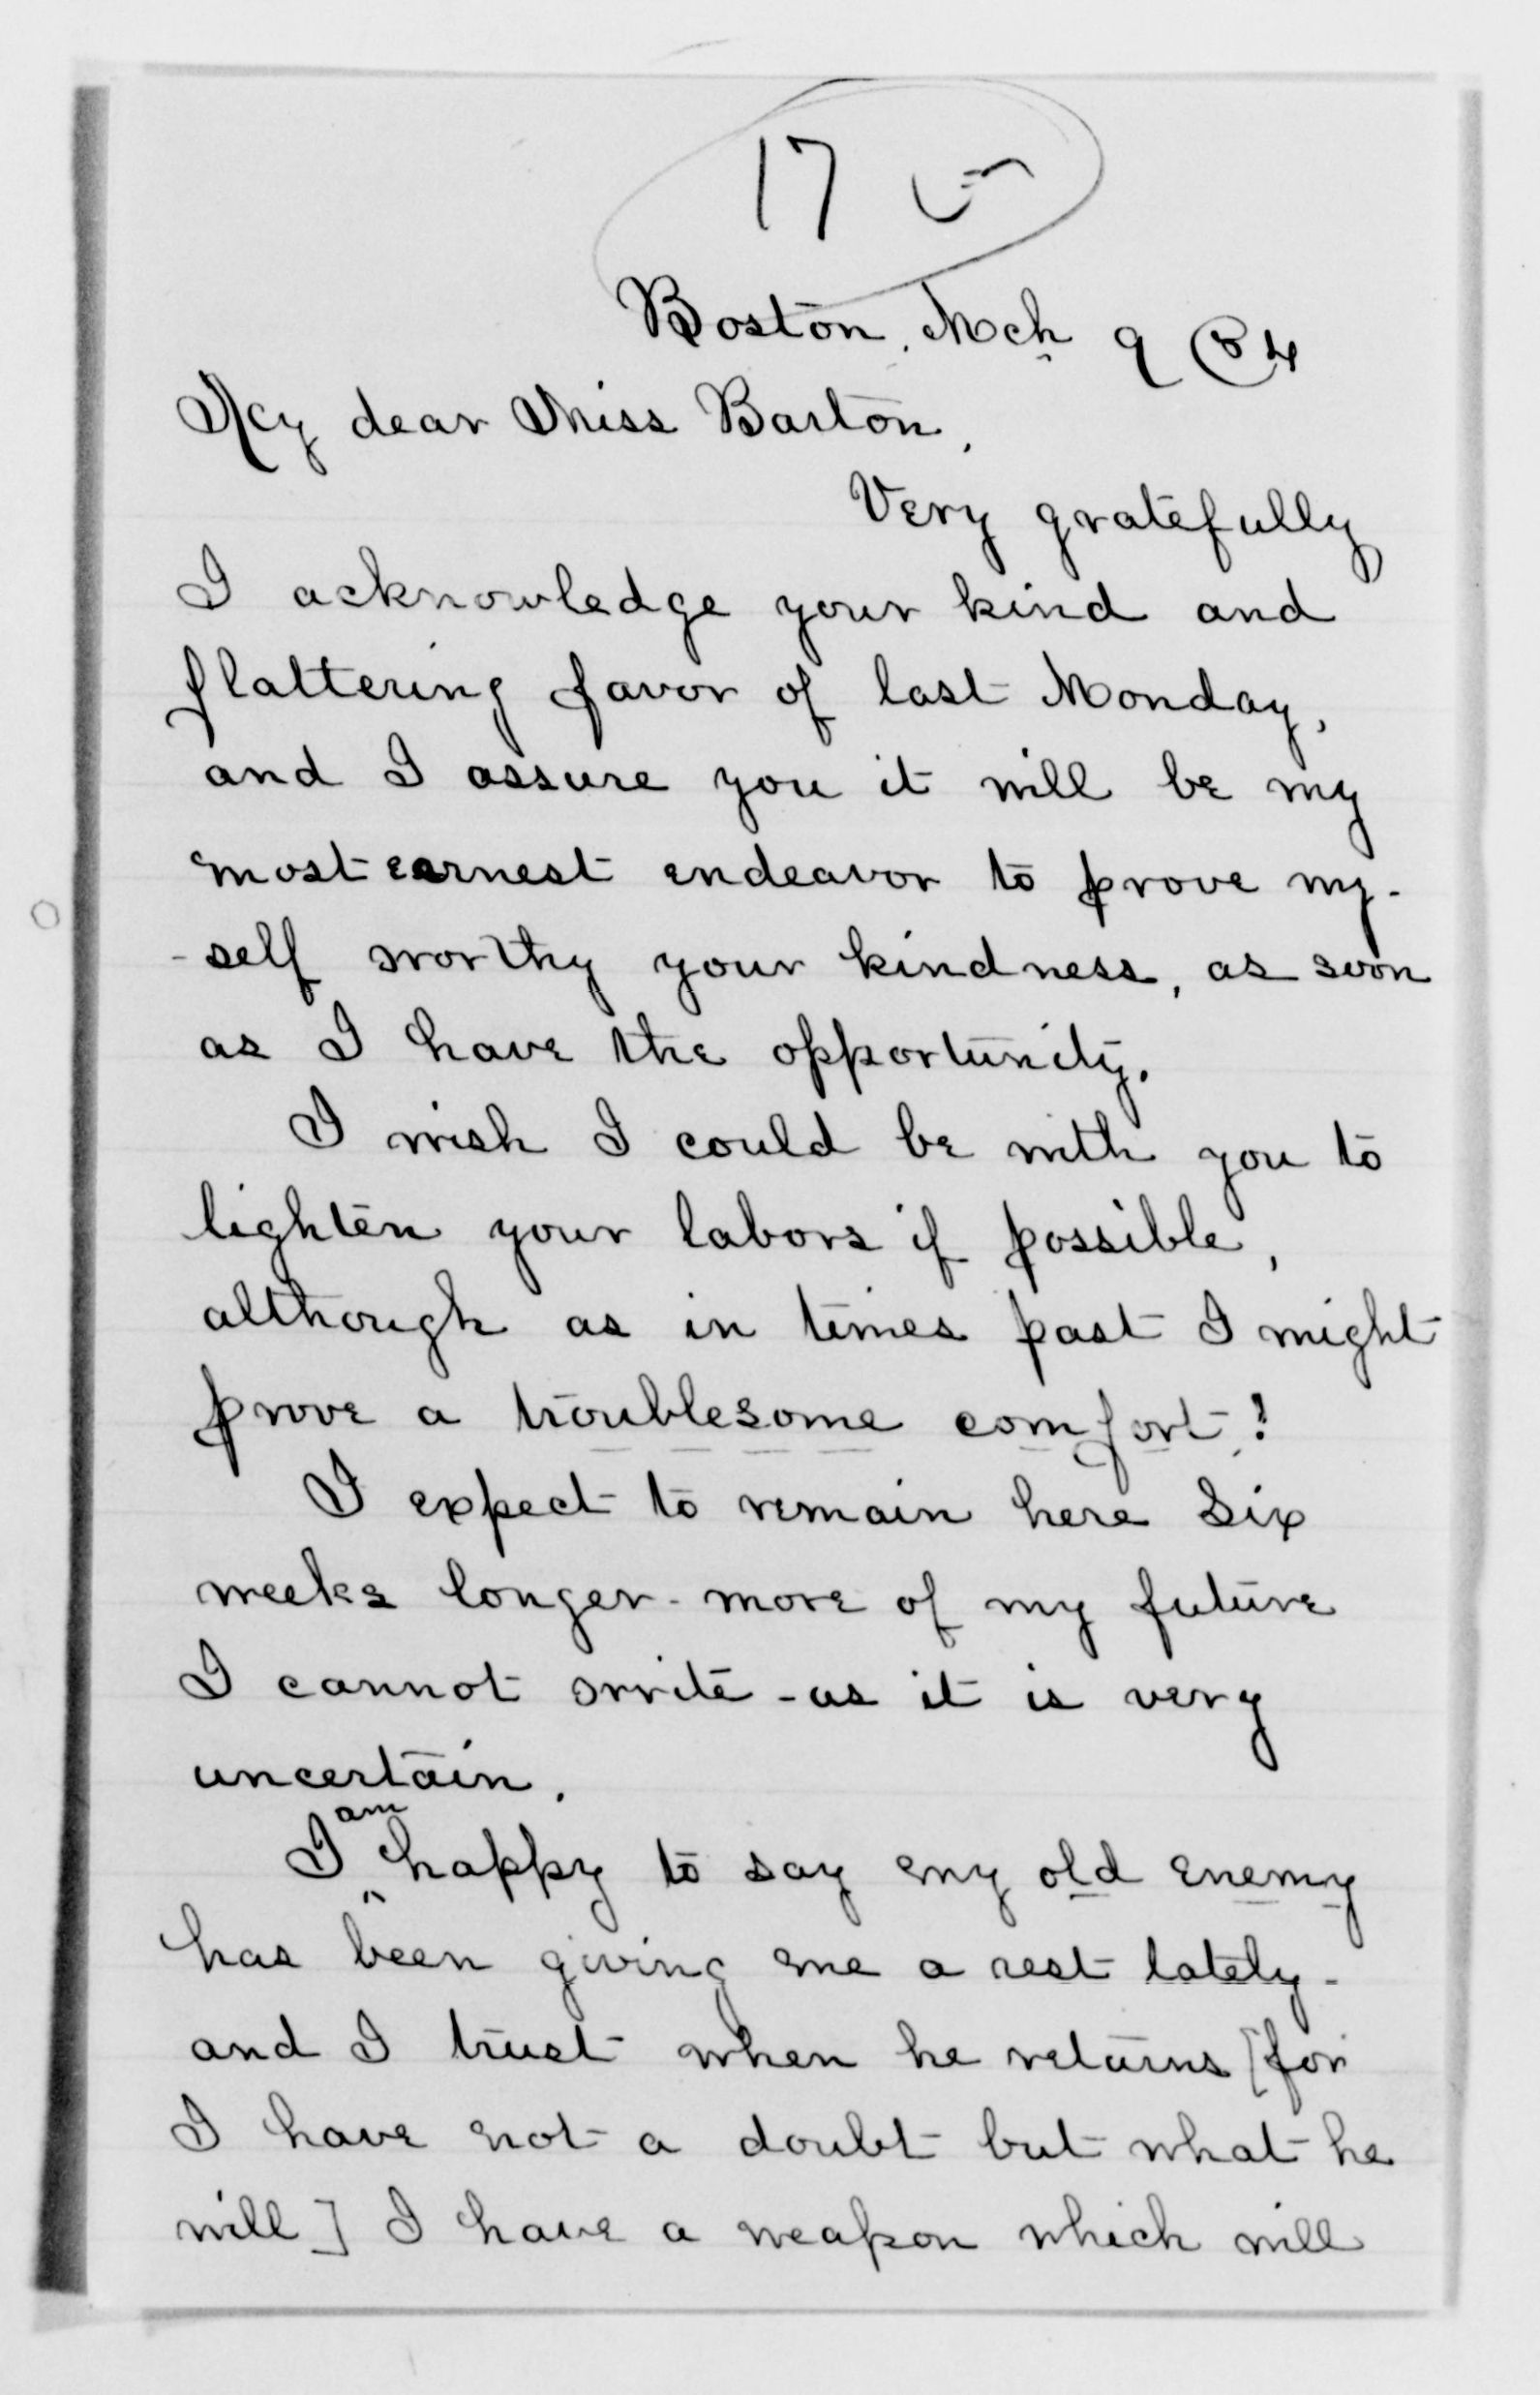 17
Boston, Mch 9 84
My dear Miss Barton,
Very gratefully
I acknowledge your kind and
flattering favor of last Monday,
and I assure you it will be my
most earnest endeavor to prove my-
-self worthy your kindness, as soon
as I have the opportunity.
I wish I could be with you to
lighten your labors if possible,
although as in times past I might
prove a troublesome comfort!
I expect to remain here six
weeks longer - more of my future
I cannot write - as it is very
uncertain.
I am happy to say my old enemy
has been giving me a rest lately -
and I trust when he returns [for
I have not a doubt but what he
will] I have a weapon which will